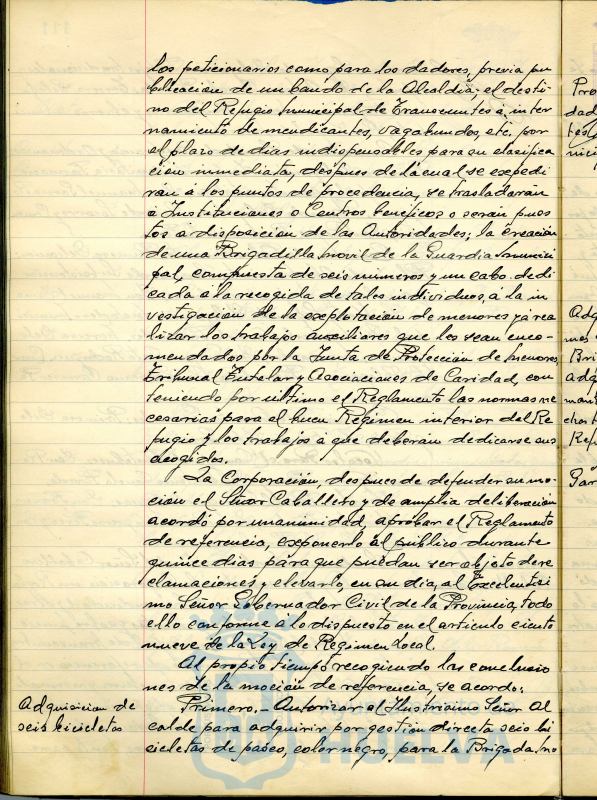 los peticionarios como para los dadores, previa pu
blicación de un bando de la Alcaldía; el desti-
no del Refugio Municipal de Transeuntes á inter
namiento de mendicantes, vagabundos, etc. por
el plazo de dias indispensables para su clasifica
cion inmediata, despues de la cual se expedi
rán á los puntos de procedencia, se trasladarán
á Instituciones o Centros beneficos o serán pues
tos a disposición de las Autoridades; la creación
de una Brigadilla movil de la Guardia Munici
pal, compuesta de seis números y un cabo dedi
cada á la recogida de tales individuos, á la in
vestigación de la explotación de menores y á rea
lizar los trabajos auxiliares que les sean enco-
mendados por la Junta de Protección de menores,
Tribunal Tutelar y Asociaciones de Caridad, con
teniendo por ultimo el Reglamento las normas ne
cesarias para el buen Regimen interior del Re
fugio y los trabajos á que deberán dedicarse sus
acogidos.
La Corporación, despues de defender su mo-
ción el Señor Caballero y de amplia deliberación
acordó por unanimidad, aprobar el Reglamento
de referencia, exponerlo al público durante
quince dias para que puedan ser objeto de re
clamaciones y elevarlo, en su dia, al Excelentisi
mo Señor Gobernador Civil de la Provincia, todo
ello conforme á lo dispuesto en el articulo ciento
nueve de la Ley de Regimen Local.
Al propio tiempo recogiendo las conclusio
nes de la moción de referencia, se acordo:
Adquisicion de
seis bicicletas
Primero.- Autorizar al Ilustrisimo Señor Al
calde para adquirir por gestión directa seis bi
cicletas de paseo, color negro, para la Brigada mo
HUELVA